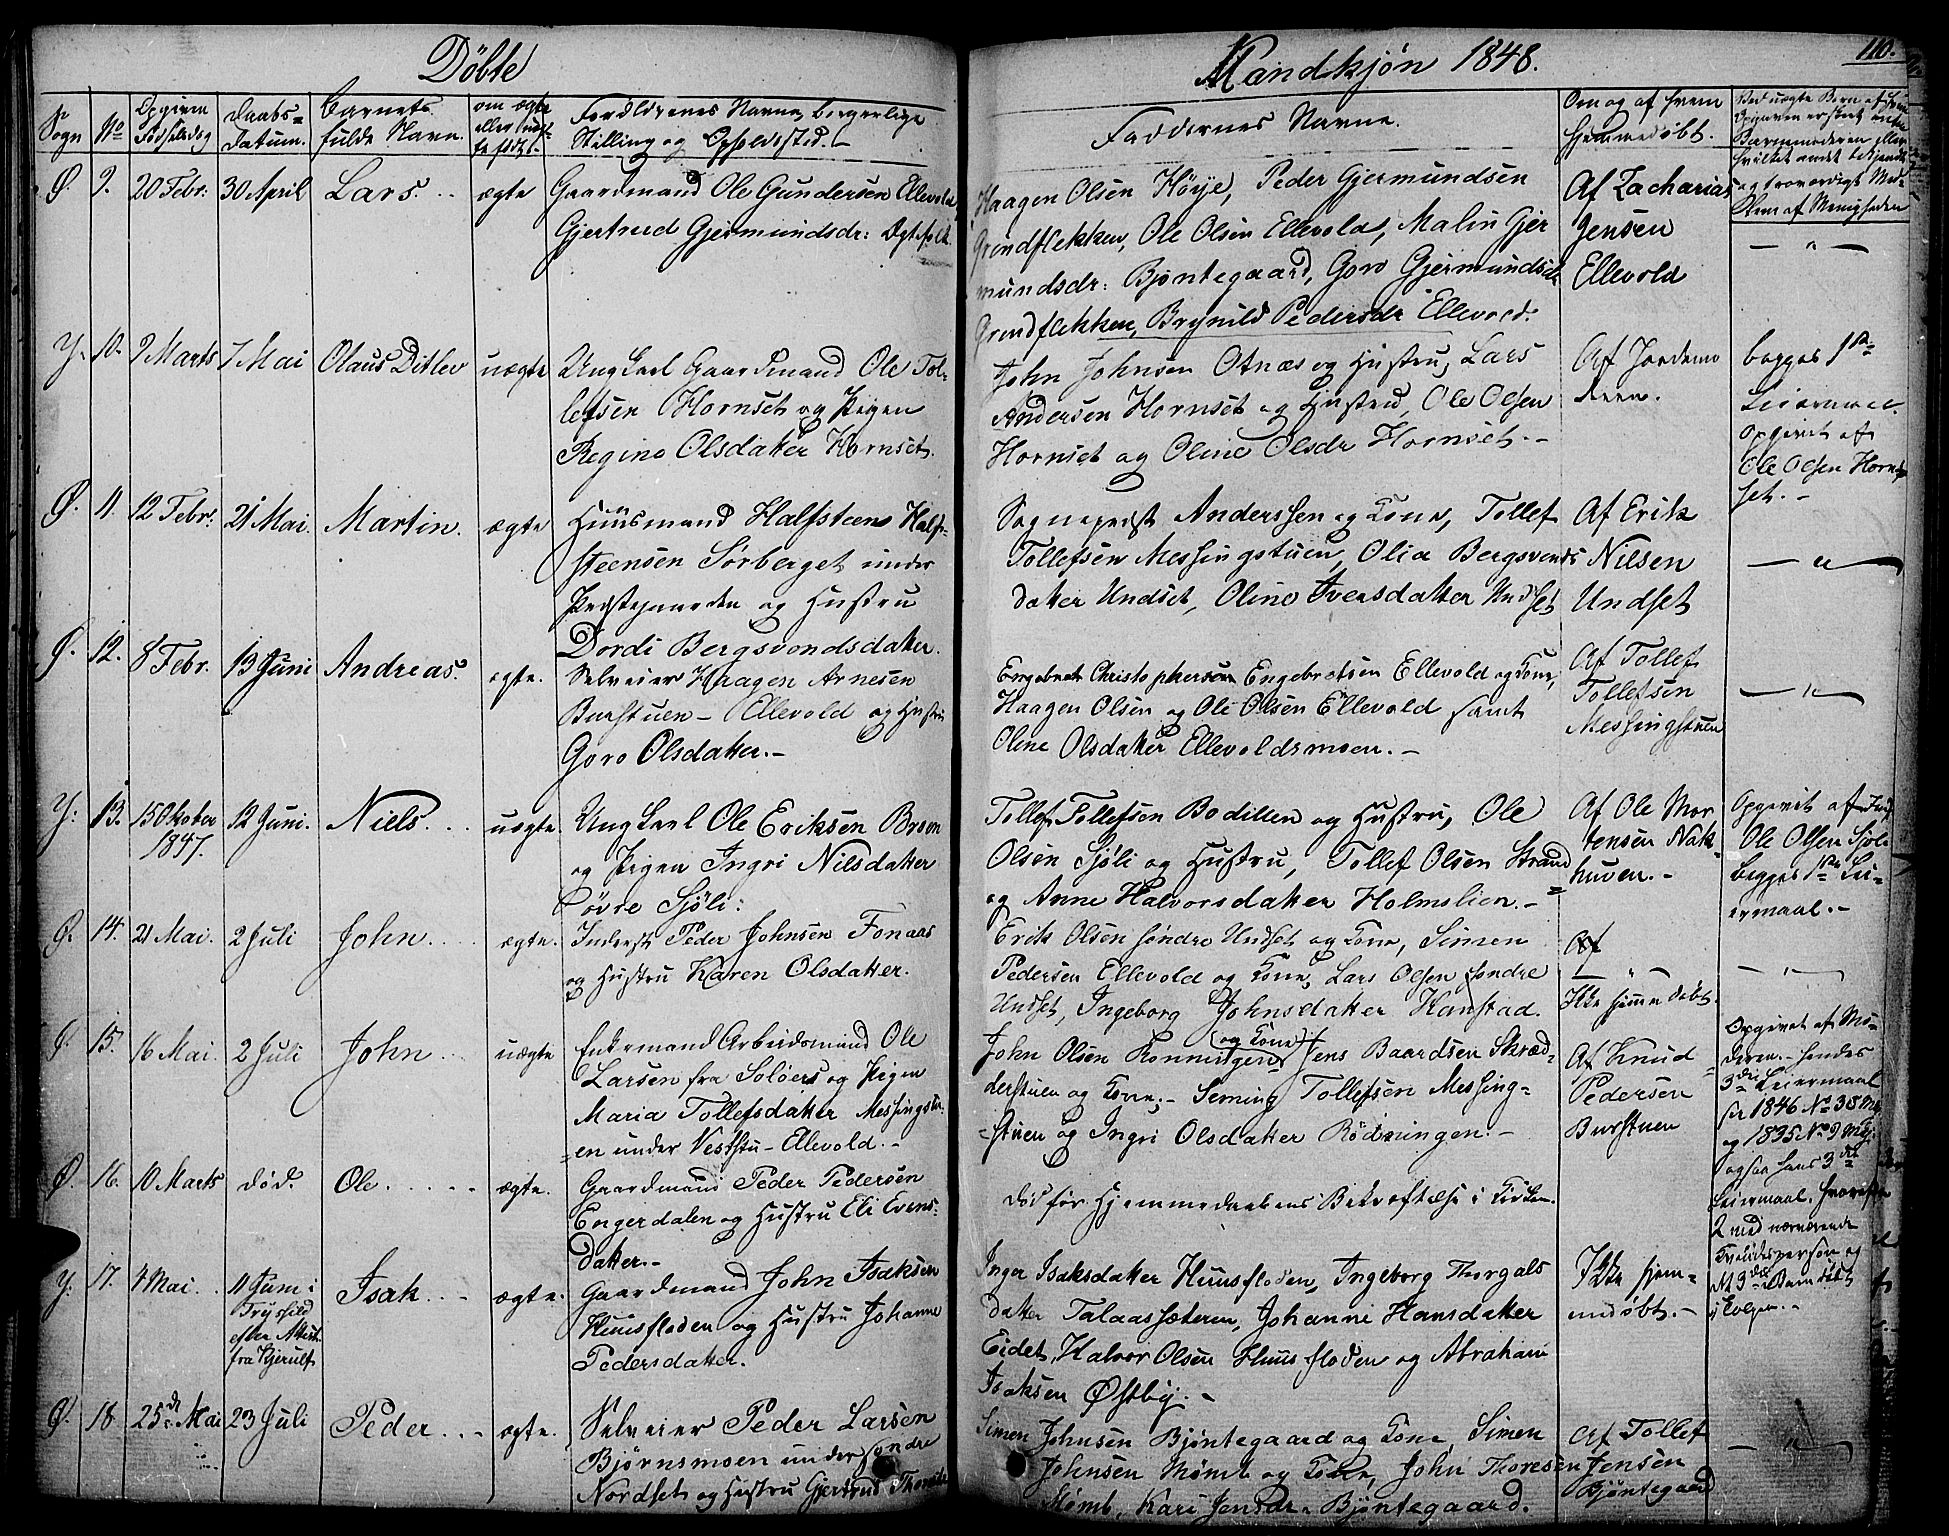 Döbte
Mandkjön 1848.
110.
Sogn
No
Opgiven Födselsdag
Daabs-Datum.
Barnets fulde Navn.
om ægte eller uægte födt.
Forældrenes Navne, borgerlige Stilling og Opholdssted.
Faddernes Navne.
Om og af hvem hjemmedöbt.
Ø. 9. 20 Febr. 30 April Lars. ægte
Gaardmand Ole Gundersen Ellevold
Gjertrud Gjermundsdr: Ægtefolk
Haagen Olsen Höiye, Peder Gjermundsen
Grindflekken, Ole Olsen Ellevold, Malin Gjer
mundsdr: Bjöntegaard, Goro Gjermundsdr
Grindflekken, Brynild Pedersdr Ellevold.
Af Zacharias
Jensen
Ellevold
Y. 10. 9 Marts 7 Mai Olaus Ditlev uægte
Ungkarl Gaardmand Ole Tol-
lefsen Hornset og Pigen
Regine Olsdatter Hornset.
John Johnsen Otnæs og Hustru, Lars
Andersen Hornset og Hustru, Ole Olsen
Hornset og Oline Olsdr Hornset.-
Af Jordemo
deren.
begges 1ste
Leiermaal.
Opgivet af
Ole Olsen Horn
set.-
Ø. 11. 12 Febr. 21 Mai. Martin. ægte
Huusmand Halfsteen Half-
steensen Sörberget under
Præstegaarden og Hustru
Dordi Bergsvendsdatter.
Sognepræst Anderssen og Kone, Tollef
Tollefsen Messingstuen, Olia Bergsvends
datter Undset, Oline Iversdatter Undset
Af Erik
Nilsen
Undset
Ø. 12. 8 Febr. 13 Juni Andreas. ægte.
Selveier Haagen Arnesen
Burstuen - Ellevold og Hustru
Goro Olsdatter.-
Engebret Christophersen Engebretsen Ellevold og Kone,
Haagen Olsen og Ole Olsen Ellevold samt
Oline Olsdatter Ellevoldsmoen.-
Af Tollef
Tollefsen
Messingstuen
Y: 13. 15 Oktober 1847. 12 Juni. Niels. uægte.
Ungkarl Ole Eriksen Broen
og Pigen Ingri Nilsdatter
övre Sjöli:
Tollef Tollefsen Bodilien og Hustru, Ole
Olsen Sjöli og Hustru, Tollef Olsen Strand
og Anne Halvorsdatter Holmslien.-
Af Ole Mor
tensen Nak-
huven.-
Opgivet af
Ole Olsen Sjöli
begges 1ste Lei-
ermaal.-
Ø. 14. 21 Mai. 2 Juli John ægte.
Inderst Peder Johnsen Fonaas
og Hustru Karen Olsdatter.
Erik Olsen söndre Undset og Kone, Simen
Pedersen Ellevold og Kone, Lars Olsen söndre
Undset, Ingeborg Johnsdatter Hanstad.
Af
Ikke hjemmedöbt.
Ø. 15. 16 Mai. 2 Juli John uægte
Enkemand Arbeidsmand Ole
Larsen fra Solöer og Pigen
Maria Tollefsdatter Messingstu-
en under Veststu - Ellevold.-
John Olsen Ronningen (og Kone) Jens Baardsen Skræd-
derstuen og Kone.- Seming Tollefsen Messing-
stuen og Ingri Olsdatter Rödningen.-
Af Knud
Pedersen
Burstuen
Opgivet af Mo-
deren.- hendes
3die Leiermaal
see 1846 No 38
og 1835 No 9
ogsaa hans 3die
Leiermaal, hvoraf
2 med nærværende
Fruentimmer og
Ø. 16. 10 Marts död. Ole ægte.
Gaardmand Peder Pedersen
Engerdalen og Hustru Eli Evens-
datter.-
död för Hjemmedaabens Bekræftelse i Kirken.
Y. 17. 4 Mai 11 Juni i Trysild efter Attest fra Kjerulf Isak ægte.
Gaardmand John Isaksen
Huusfloden og Hustru Johanne
Pedersdatter.
Inger Isaksdatter Huusfloden, Ingeborg Thorgals
datter Talaassæteren, Johanne Hansdatter
Eidet, Halvor Olsen Huusfloden og Abraham
Isaksen Østby.-
Ikke hjem-
medöbt.-
Ø. 18 25de Mai 23 Juli Peder ægte.
Selveier Peder Larsen
Björnsmoen under söndre
Nordset og Hustru Gjertrud
Simen Johnsen Bjöntegaard og Kone, Simen
Johnsen Mömb og Kone, John Thoresen
Mömb, Kari Jensdr. Bjöntegaard.
Af Tollef
Jensen
Bjöntegaard